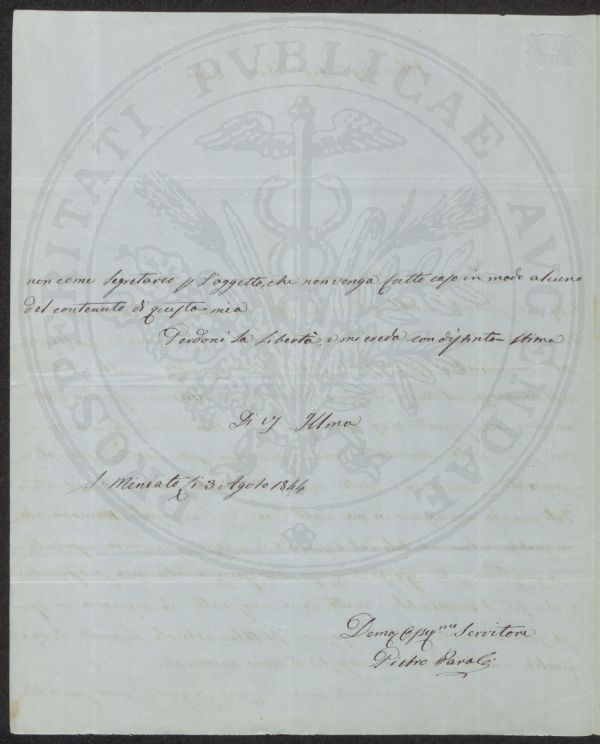 PROSPERITATI PVBLICAE AVGENDAE
non come Segretario p l'oggetto, che non venga fatto caso in modo alcuno
del contenuto di questa mia
Perdoni la libertà, e mi creda con distinta stima
Di V S Illma
S. Miniato, li 3 Agosto 1844
Servitore
Pietro